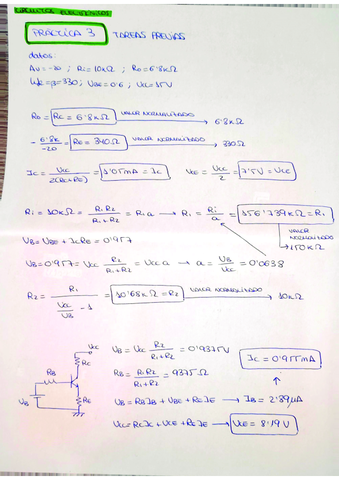 CIRCUITOS ELECTRÓNICOS
PRÁCTICA 3 TAREAS PREVIAS
datos:
Av = -20 ; Ri = 10KΩ ; Ro = 6'8KΩ
hfe = β = 330 ; VBE = 0'6 ; Vcc = 15V
Ro = Rc = 6'8KΩ VALOR NORMALIZADO → 6'8KΩ
- 6'8K / -20 = RE = 340Ω VALOR NORMALIZADO → 330Ω
Ic = Vcc / 2(Rc+RE) = 1'05mA = Ic VCE = Vcc / 2 = 7'5V = VCE
Ri = 10KΩ = R1R2 / R1+R2 = R1a → R1 = Ri / a = 156'739KΩ = R1
VALOR NORMALIZADO
→ 150KΩ
VB = VBE + IcRE = 0'957
VB = 0'957 = Vcc R2 / R1+R2 = Vcc a → a = VB / Vcc = 0'0638
R2 = R1 / (Vcc / VB - 1) = 10'68KΩ = R2 VALOR NORMALIZADO → 10KΩ
Vcc
Rc
RB
VB
RE
VB = Vcc R2 / R1+R2 = 0'9375V
Ic = 0'955mA
RB = R1R2 / R1+R2 = 9375Ω
VB = RBIB + VBE + REIE → IB = 2'89μA
Vcc = RcIc + VCE + REIE → VCE = 8'19V